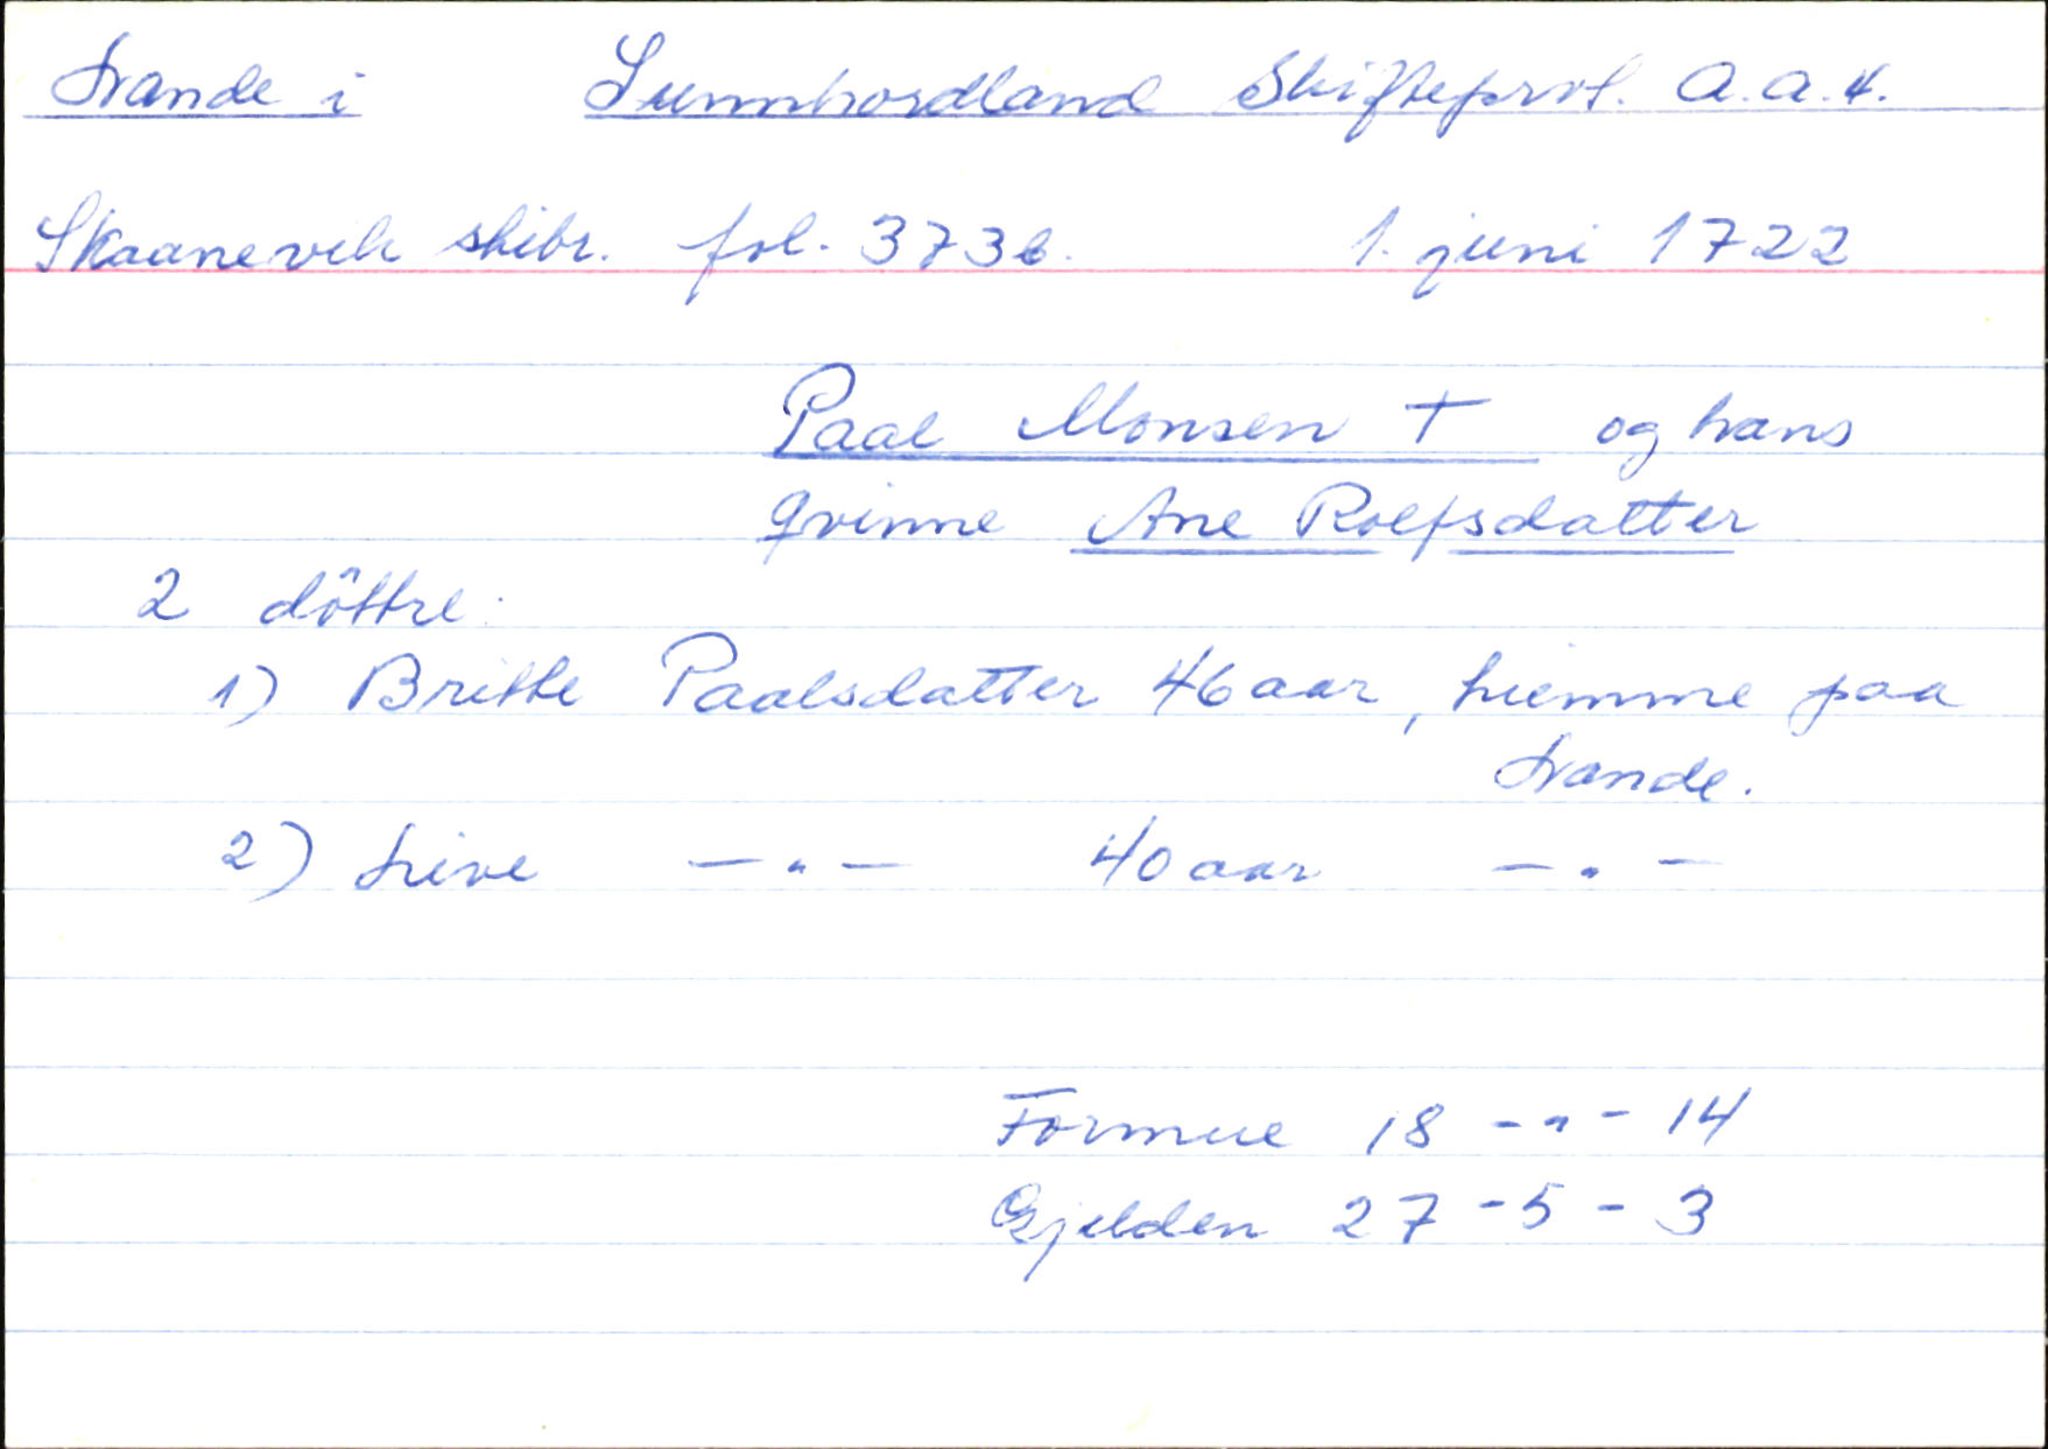 Sande i Sunnhordland Skifteprot. A.a.4.
Skaanevik skibr. fol. 373b. 1. juni 1722
Paal Monsen † og hans
qvinne Ane Rolfsdatter
2 döttre:
1) Britte Paalsdatter 46 aar, hiemme paa
Sande.
2) Sive —"— 40 aar —"—
Formue 18 - " - 14
Gjelden 27 - 5 - 3